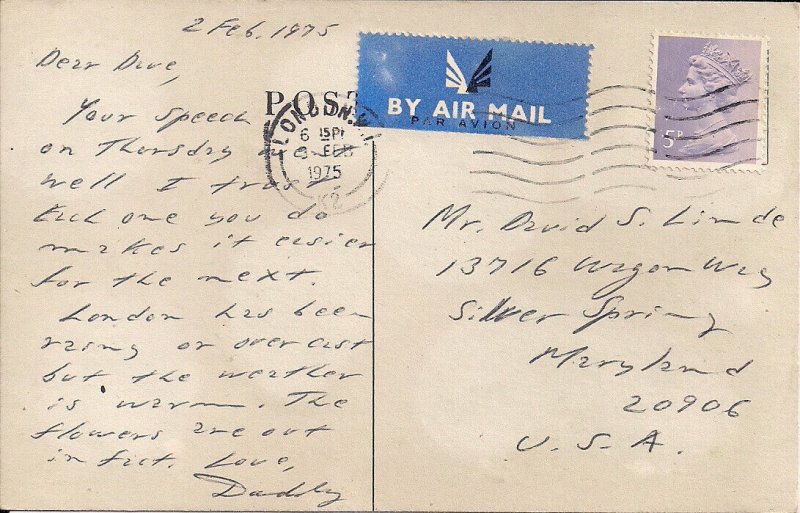 2 Feb. 1975
Dear Dave,
Your speech
on Thursday
well I trust.
Each one you do
makes it easier
for the next.
London has been
rainy or overcast
but the weather
is warm. The
flowers are out
in fact. Love,
Daddy
POST
LONDON.
6 15PM
3 FEB
1975
BY AIR MAIL
PAR AVION
5P
Mr. David S. Linde
13716 Wagon Way
Silver Spring
Maryland
20906
U.S.A.